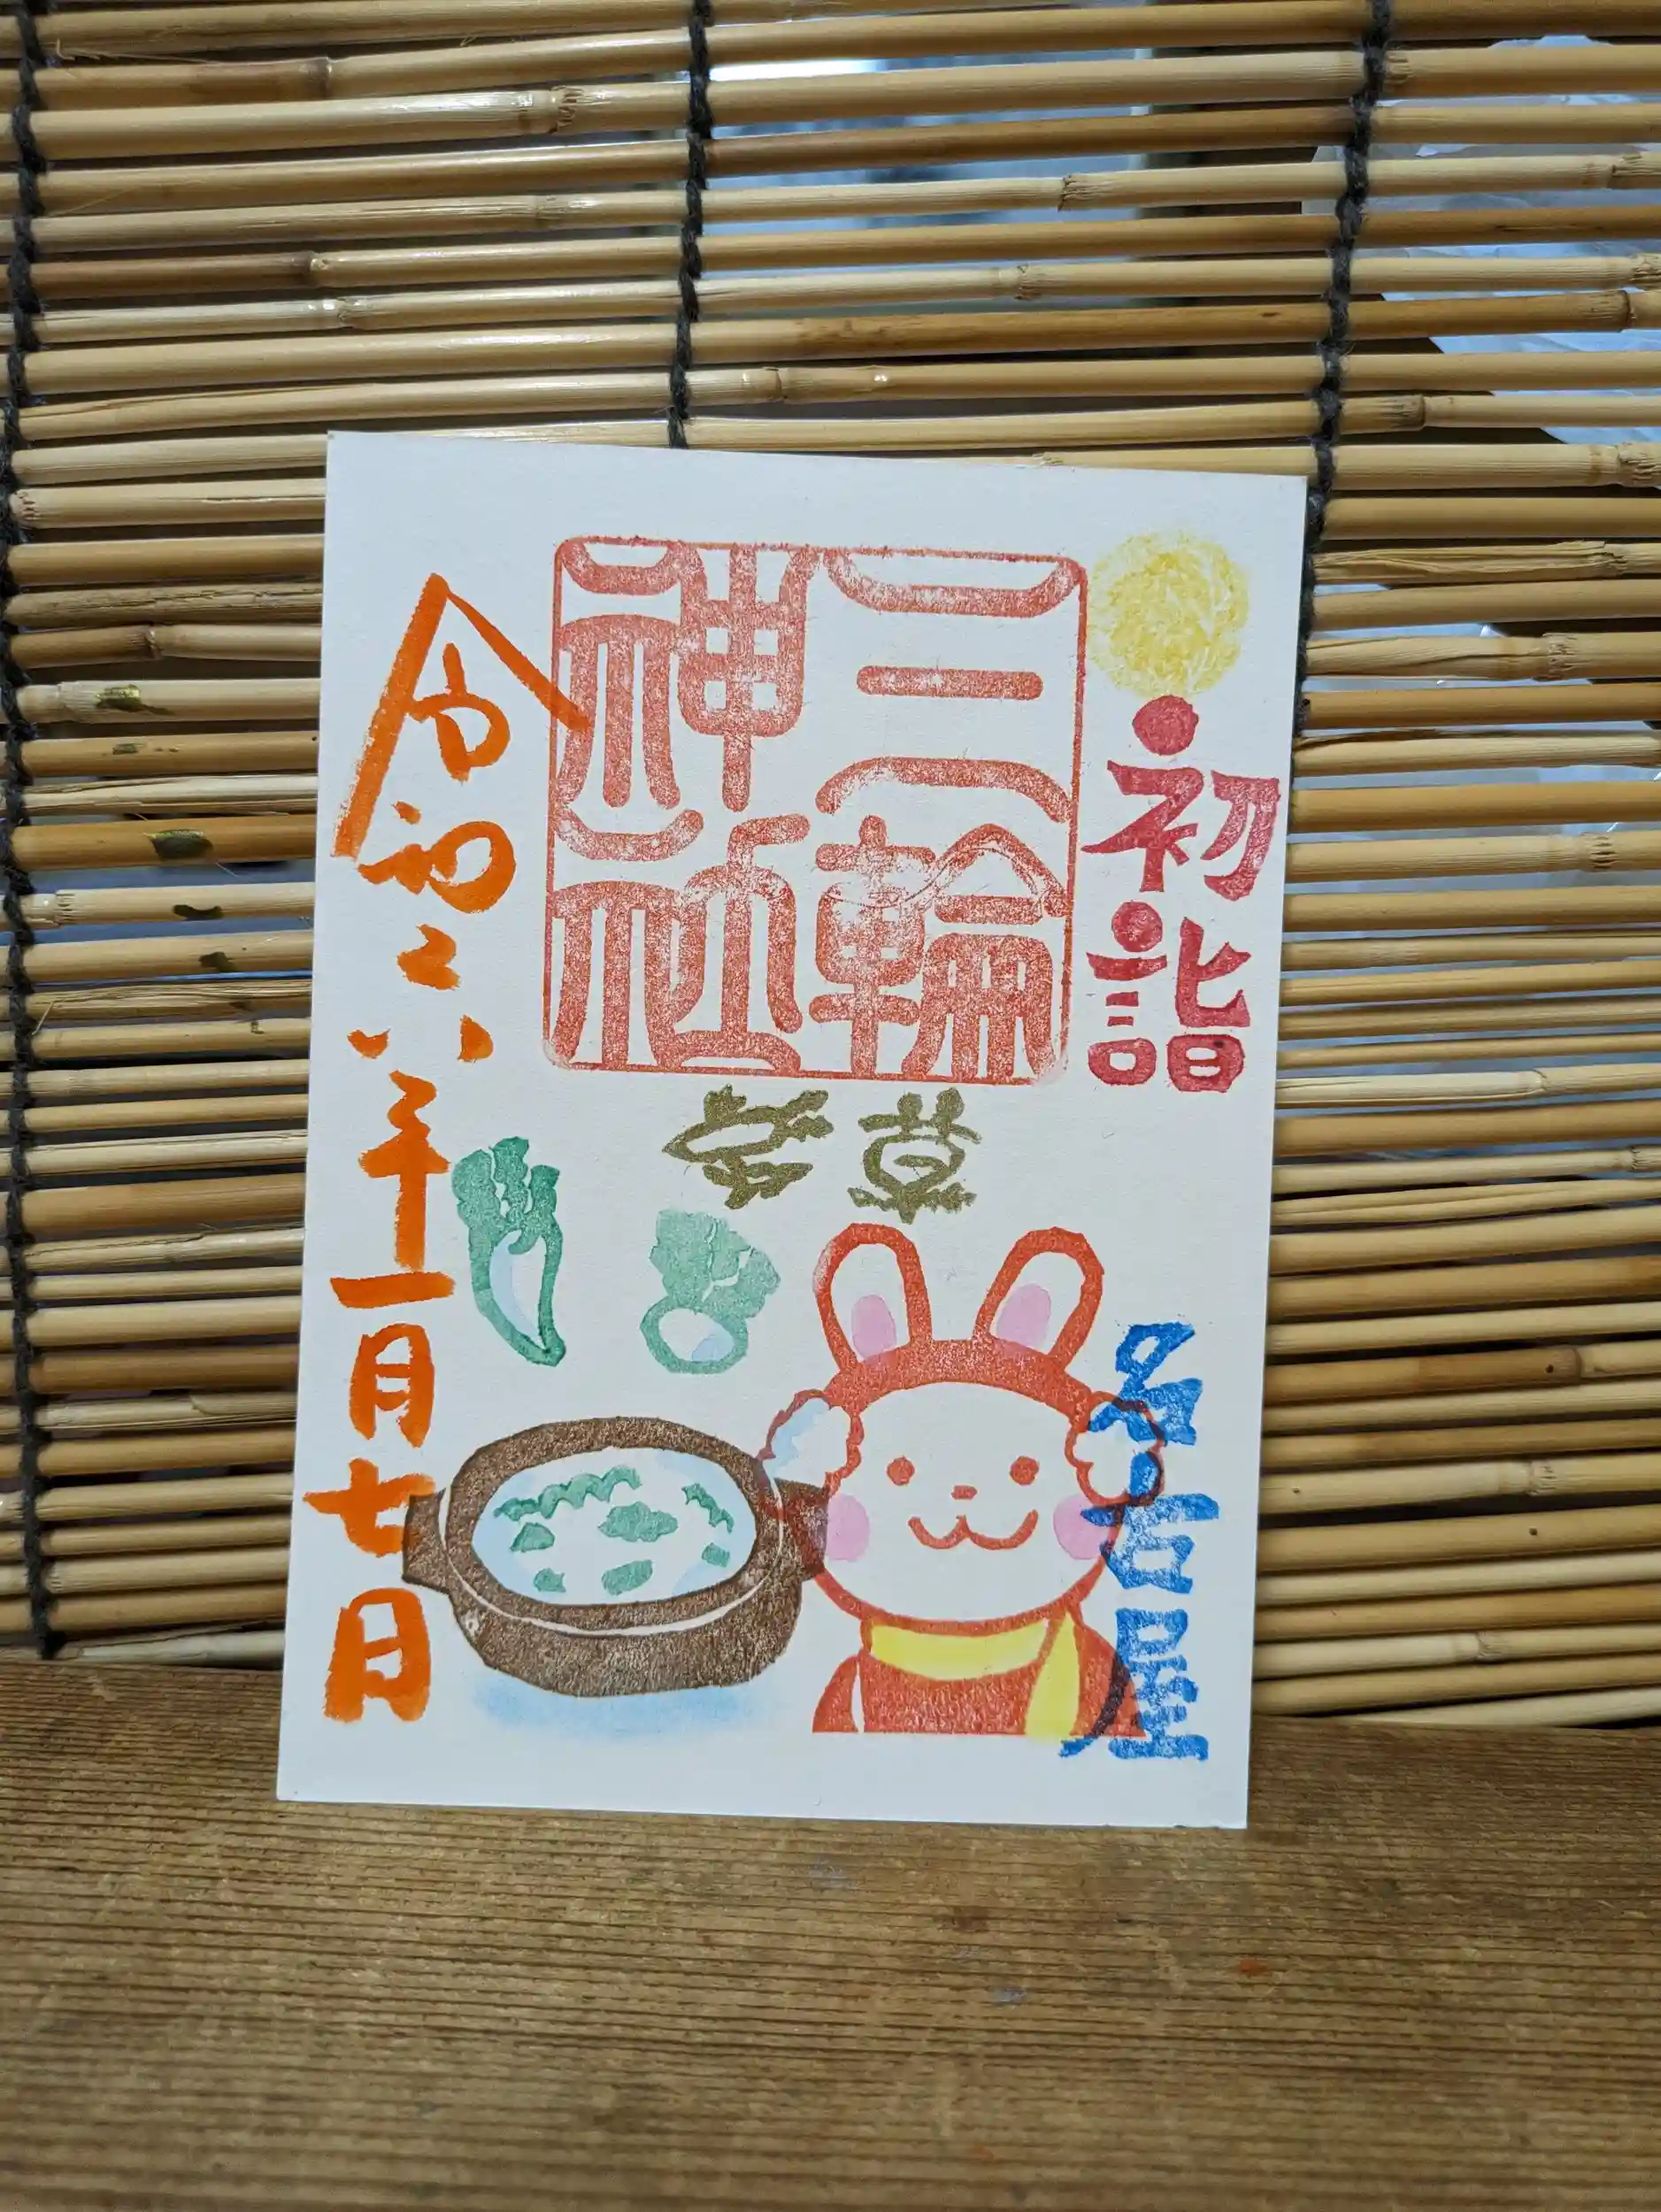 初詣
三輪
神社
七草
名古屋
令和六年一月七日